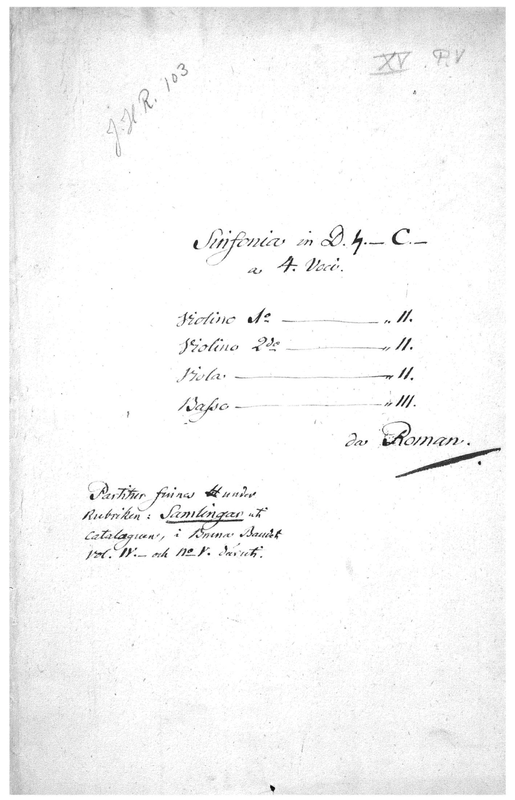 J. H. R. 103
XV. P. V
Sinfonia in D. ♮. — C. —
a 4. Voci.
Violino 1o — „ II.
Violino 2do — „ II.
Viola — „ II.
Basso — „ III.
da Roman.
Partitur finnes under
Rubriken: Samlingar uti
Catalaguen, i Bruna Bandet
Vol. IV. — och No V. däruti.